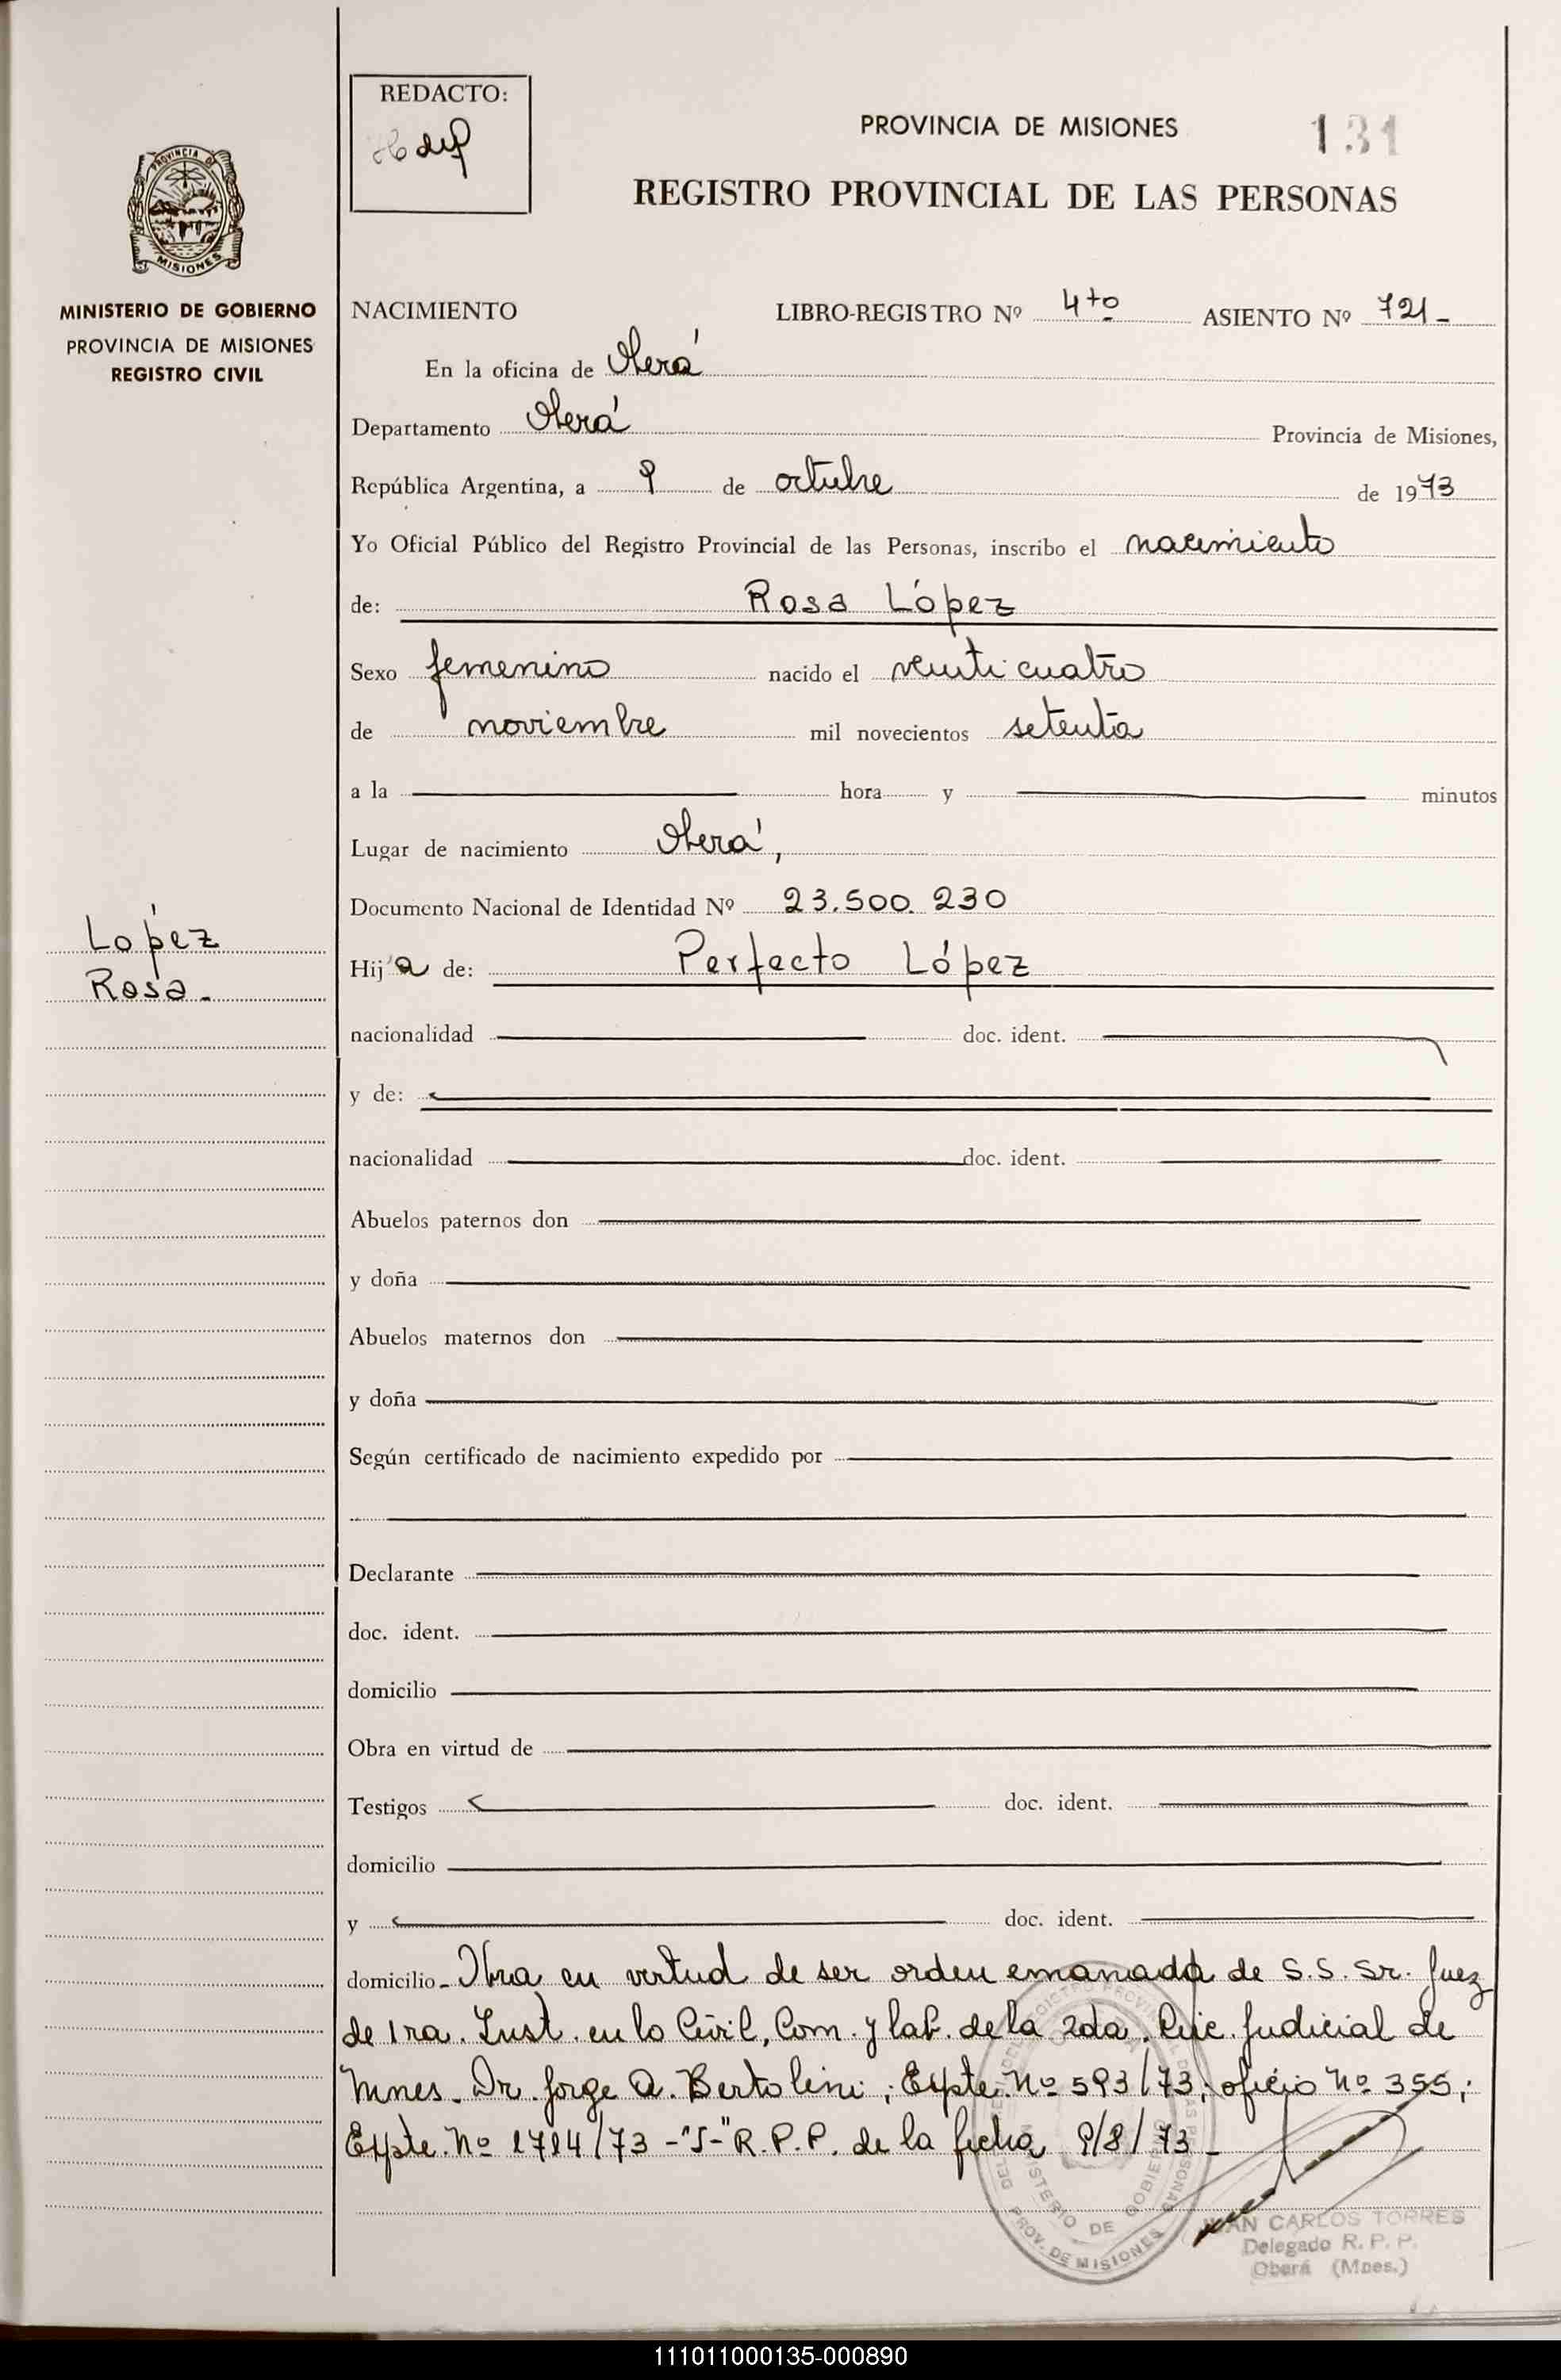 REDACTO:
PROVINCIA DE MISIONES
131
REGISTRO PROVINCIAL DE LAS PERSONAS
PROVINCIA DE
MISIONES
MINISTERIO DE GOBIERNO
PROVINCIA DE MISIONES
REGISTRO CIVIL
NACIMIENTO LIBRO-REGISTRO Nº 4to ASIENTO Nº 721-
En la oficina de Oberá
Departamento Oberá Provincia de Misiones,
República Argentina, a 9 de octubre de 1973
Yo Oficial Público del Registro Provincial de las Personas, inscribo el nacimiento
de: Rosa López
Sexo femenino nacido el veinticuatro
de noviembre mil novecientos setenta
a la hora y minutos
Lugar de nacimiento Oberá,
Documento Nacional de Identidad Nº 23.500.230
López
Rosa-
Hija de: Perfecto López
nacionalidad doc. ident.
y de:
nacionalidad doc. ident.
Abuelos paternos don
y doña
Abuelos maternos don
y doña
Según certificado de nacimiento expedido por
Declarante
doc. ident.
domicilio
Obra en virtud de
Testigos doc. ident.
domicilio
y doc. ident.
domicilio- Obra en virtud de ser orden emanada de S.S. Sr. Juez
de 1ra. Inst. en lo Civil, Com. y lab. de la 2da. Circ. Judicial de
Mnes. Dr. Jorge A. Bertolini; Expte. Nº 593/73; oficio Nº 355;
Expte. Nº 1714/73 - R.P.P. de la fecha 9/8/73-
JUAN CARLOS TORRES
Delegado R. P. P.
Oberá (Mnes.)
PROV. DE MISIONES
MINISTERIO DE GOBIERNO
111011000135-000890